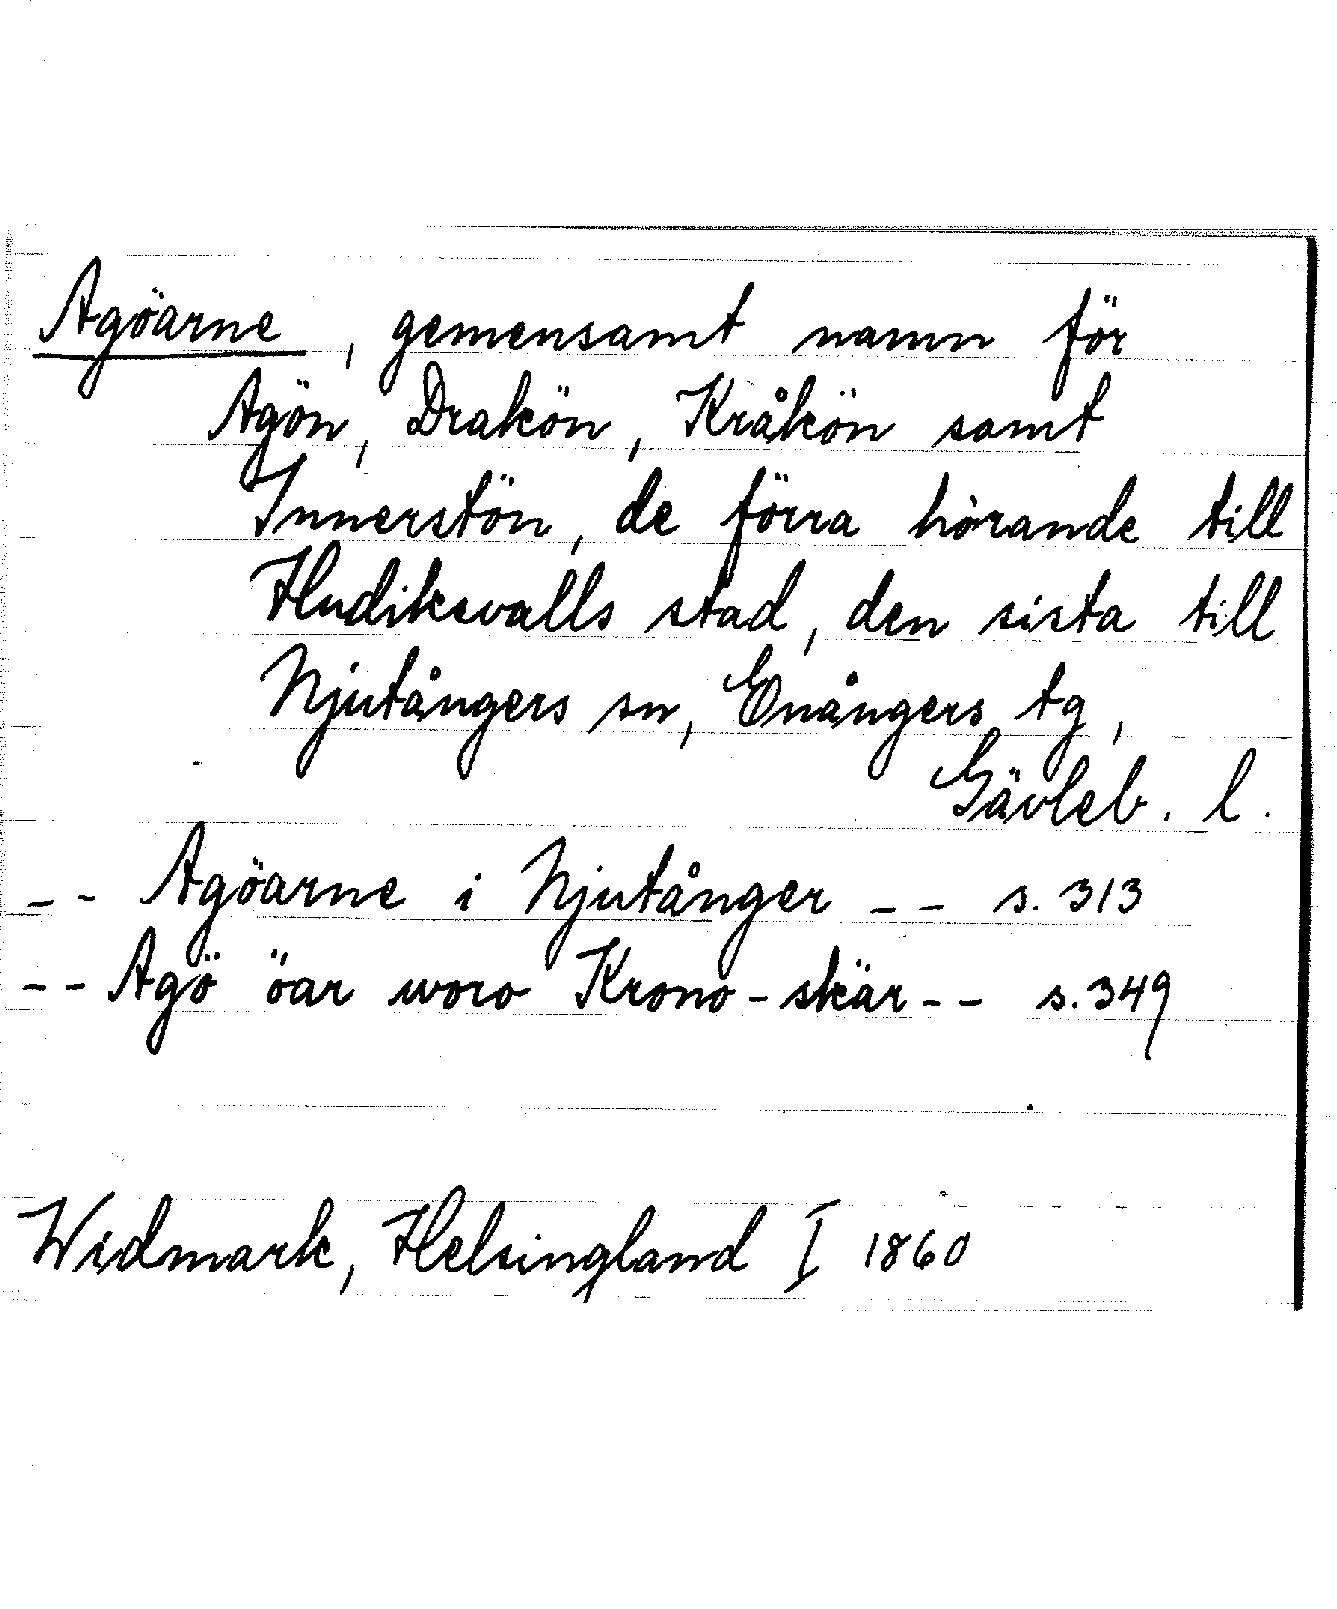 Agöarne, gemensamt namn för
Agön, Drakön, Kråkön samt
Innerstön, de förra hörande till
Hudiksvalls stad, den sista till
Njutångers sn, Enångers tg,
Gävleb. l.
-- Agöarne i Njutånger -- s. 313
-- Agö öar woro Krono-skär -- s. 349
Widmark, Helsingland I 1860